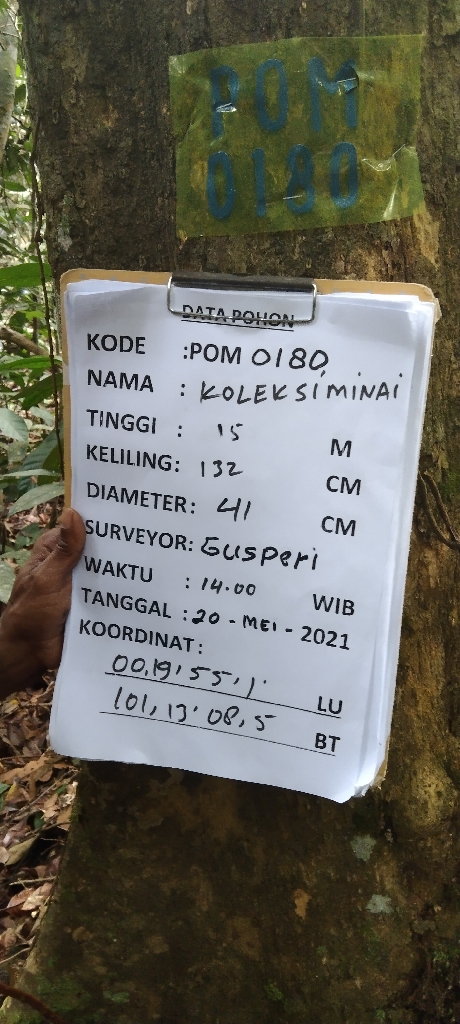 POM
0180
DATA POHON
KODE :POM 0180
NAMA : KOLEKSIMINAI
TINGGI : 15 M
KELILING: 132 CM
DIAMETER: 41 CM
SURVEYOR: Gusperi
WAKTU : 14.00 WIB
TANGGAL : 20 - MEI - 2021
KOORDINAT:
00,19'55,1' LU
101,13'08,5 BT